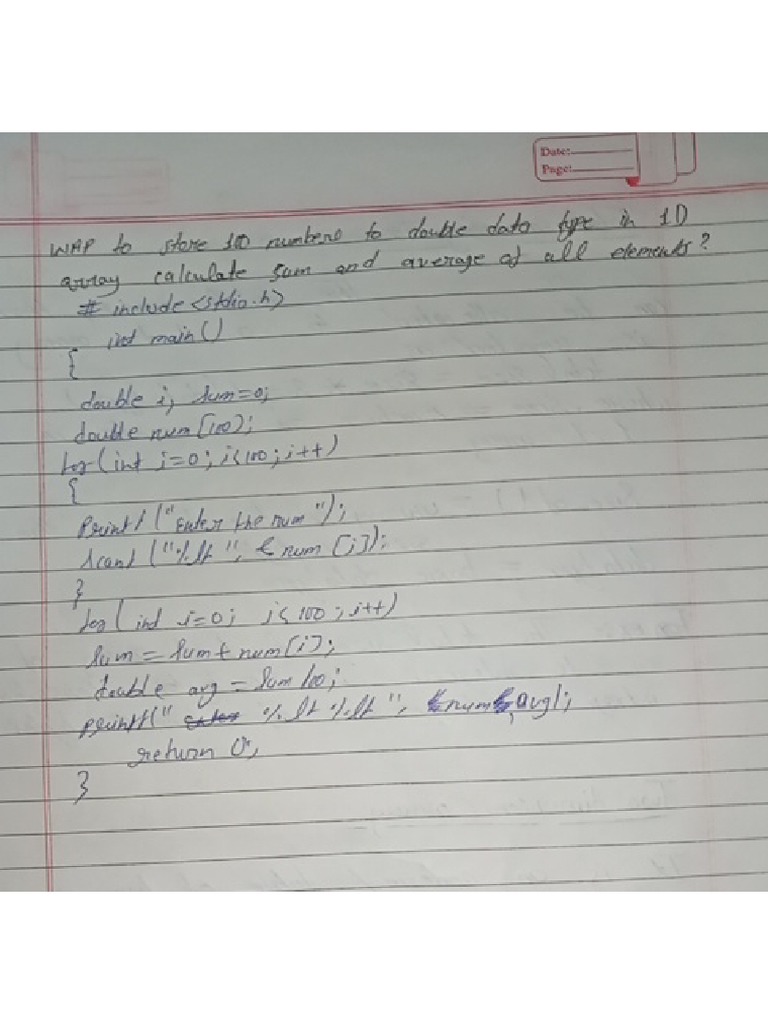 Date:
Page:
WAP to store 100 numbers to double data type in 1D
array calculate sum and average of all elements?
# include <stdio.h>
int main()
{
double i, sum=0;
double num[100];
for(int i=0; i<100; i++)
{
Printf ("Enter the num");
scanf ("%lf", & num [i]);
}
for( int i=0; i<100; i++)
sum = sum + num[i];
double avg = sum/100;
printf(" %lf %lf ", num, avg);
return 0;
}